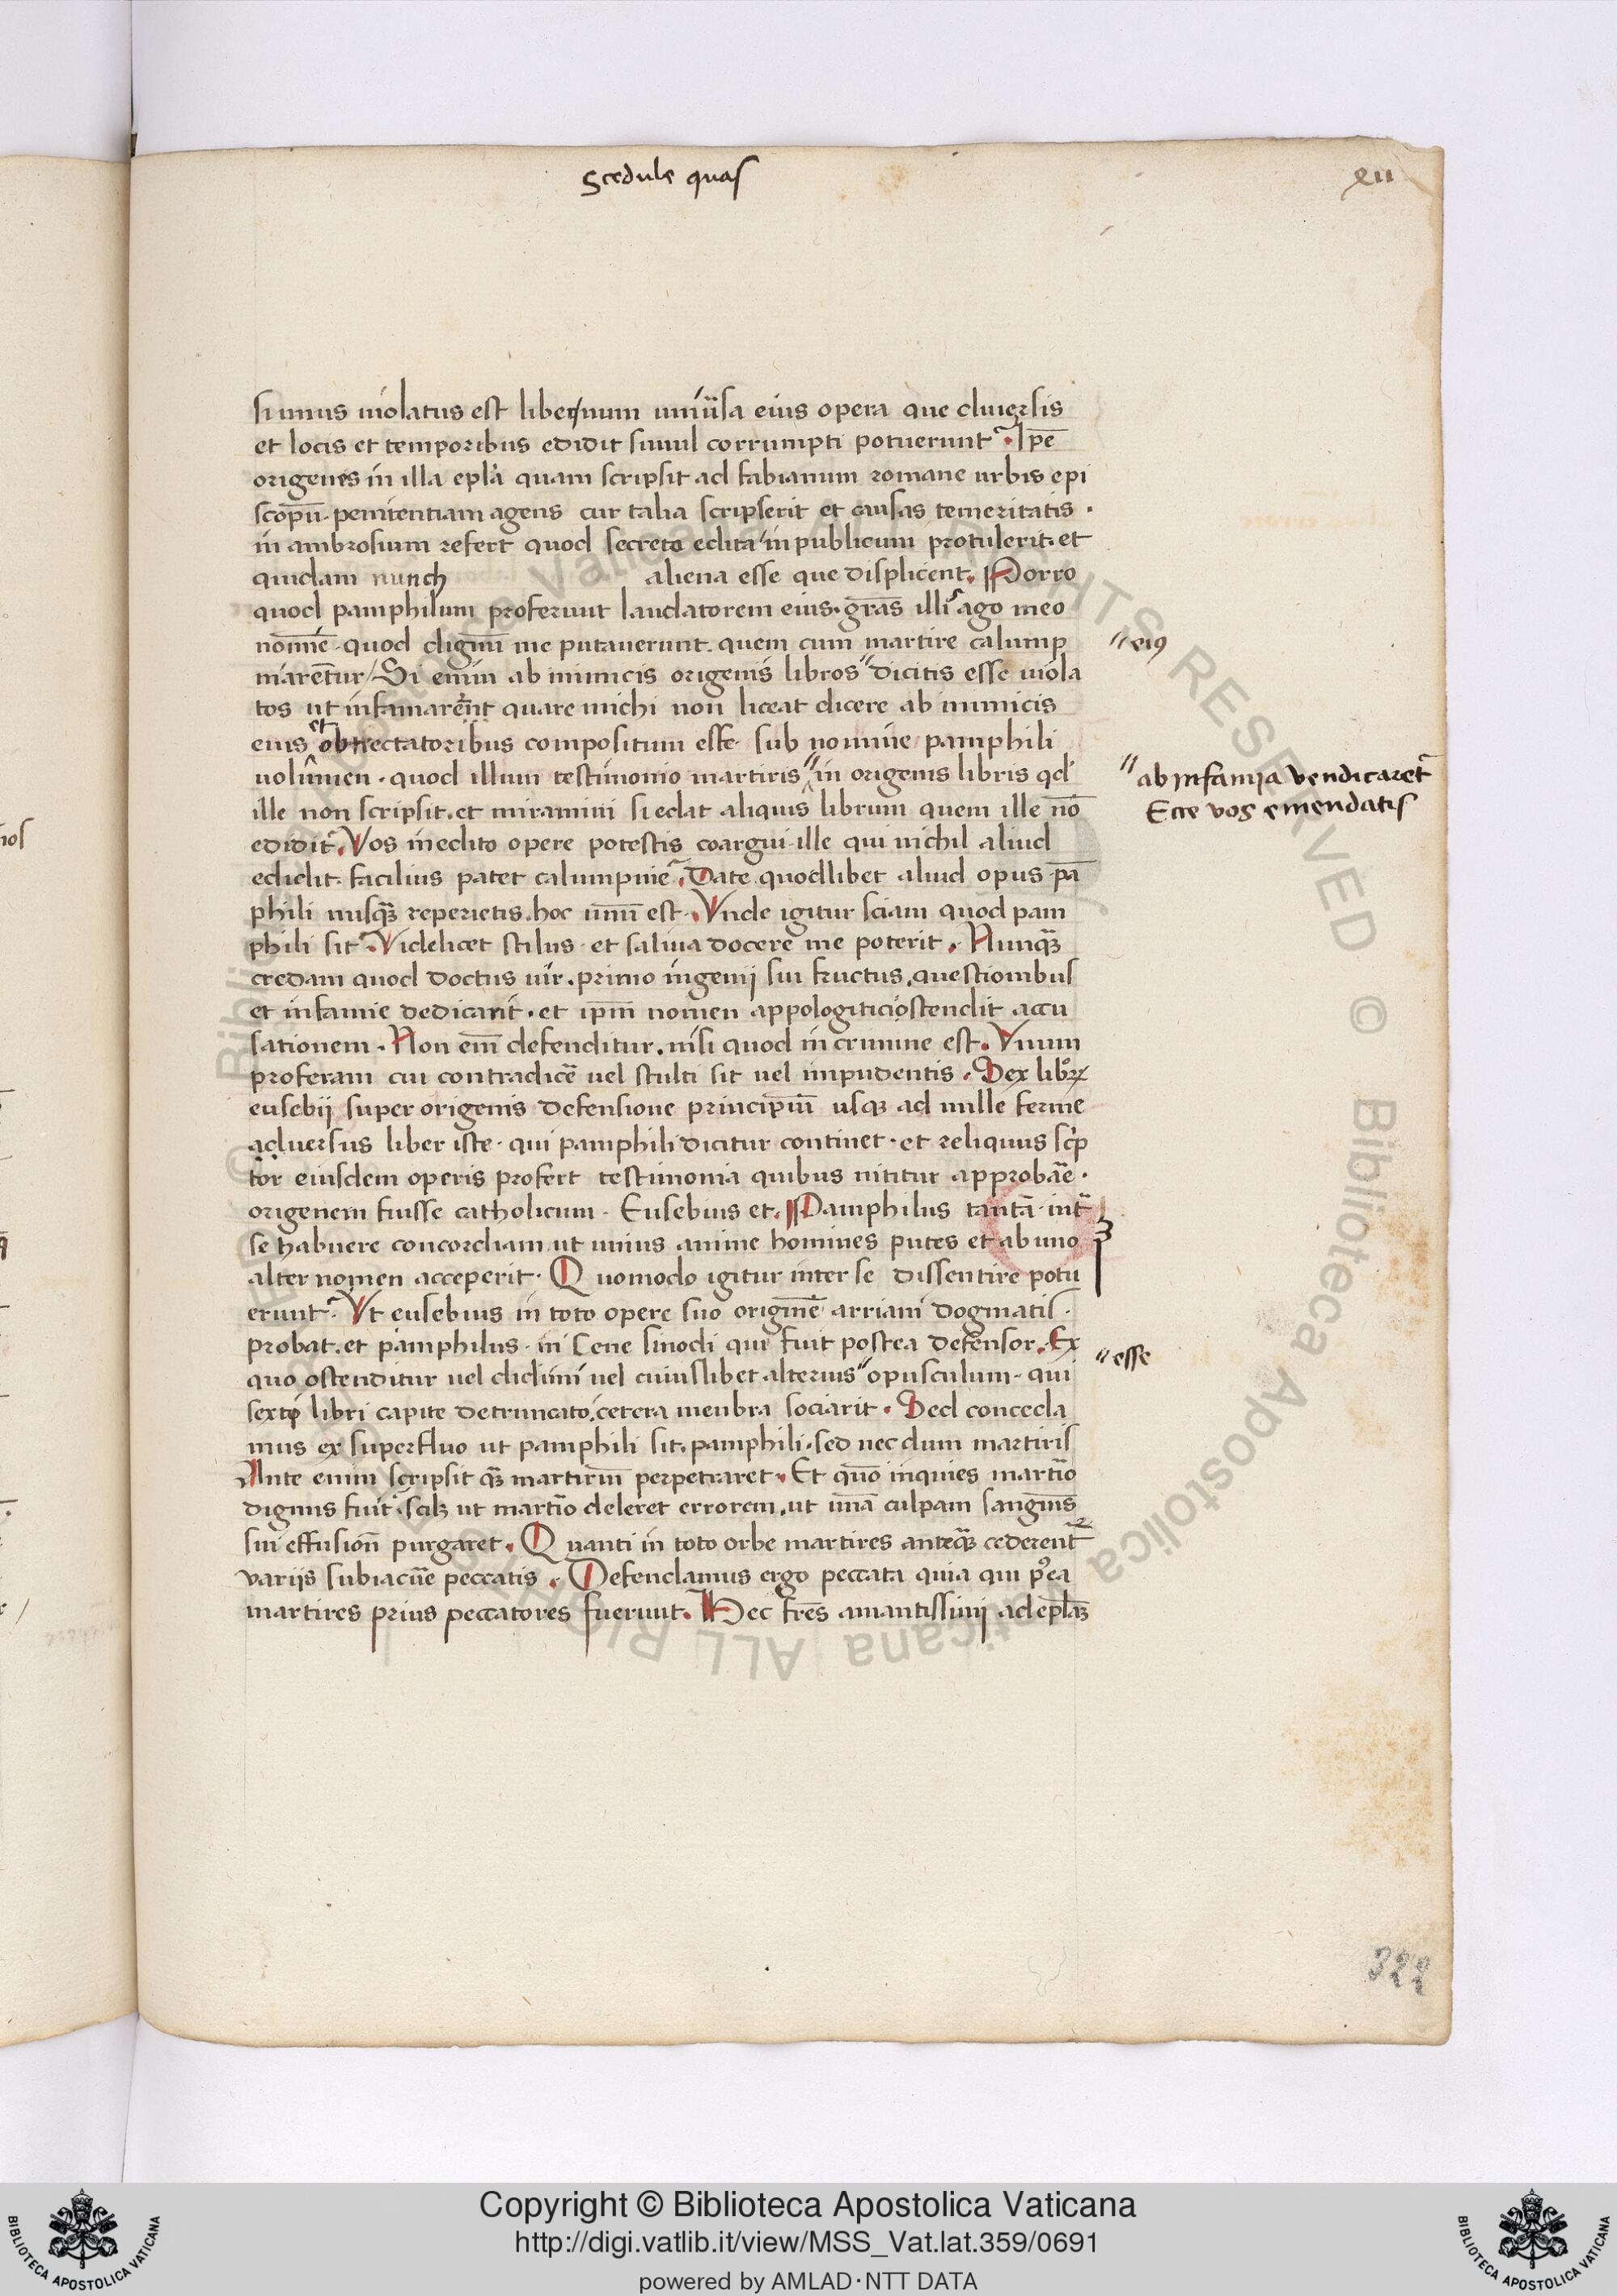 Scedule quas
xii
simus uiolatus est liber/num uniũsa eius opera que diuersis
et locis et temporibus edidit simul corrumpti potuerunt. Ip̄e
origenes in illa epl'a quam scripsit ad fabianum romane urbis epi
scopū. penitentiam agens cur talia scripserit et causas temeritatis.
in ambrosium refert quod secreto edita in publicum protulerit. et
quidam nunch aliena esse que displicent. Porro
quod pamphilum proferunt laudatorem eius. grās illis ago meo
nomīe. quod dignū me putauerunt. quem cum martire calump
niarent̄ur/ Si enim ab inimicis origenis libros" dicitis esse uiola
"ei9
tos ut infamarent quare michi non liceat dicere ab inimicis
eius et obtrectatoribus compositum esse. sub nomine pamphili
uolumen. quod illum testimonio martiris" in origenis libris qd'
"ab infamia vendicaret
Ecce vos emendatis
ille non scripsit. et miramini si edat aliquis librum quem ille nō
edidit. Vos inedito opere potestis coargui. ille qui nichil aliud
edidit. facilius patet calumpnie. Date quodlibet aliud opus pā
phili nusq̄ reperietis. hoc unū est. Vnde igitur sciam quod pam
phili sit. Videlicet stilus. et saliua docere me poterit. Nunq̄
credam quod doctus uir. primo ingenij sui fructus. questionibus
et infamie dedicarit. et ipm̄ nomen appologitici ostendit accu
sationem. Non em̄ defenditur. nisi quod in crimine est. Vnum
proferam cui contradicē uel stulti sit uel impudentis. Sex libꝝ
eusebij super origenis defensione principiū usq3 ad mille ferme
aduersus liber iste. qui pamphili dicitur continet. et reliquus sc'p
tor eiusdem operis profert testimonia quibus nititur approbāe.
origenem fuisse catholicum. Eusebius et. Pamphilus tantā int̄
se habuere concordiam ut unius anime homines putes et ab uno
alter nomen acceperit. Quomodo igitur inter se dissentire potu
erunt. Vt eusebius in toto opere suo originē arriani dogmatis.
probat. et pamphilus. niCene sinodi qui fuit postea defensor. Ex
quo ostenditur uel didimi uel cuiuslibet alterius" opusculum. qui
"esse
sexto libri capite detruncato. cetera menbra sociarit. Sed conceda
mus ex superfluo ut pamphili sit. pamphili. sed nec dum martiris
Ante enim scripsit q̄ martiriū perpetraret. Et quō inquies martio
dignus fuit. scil3 ut martio deleret errorem. ut unā culpam sanguīs
sui effusion̄ purgaret. Quanti in toto orbe martires anteq̄ cederent̄
variis subiacūe peccatis. Defendamus ergo peccata quia qui p'ea
martires prius peccatores fuerunt. Hec frēs amantissimi ad epl'az
322
Copyright © Biblioteca Apostolica Vaticana
http://digi.vatlib.it/view/MSS_Vat.lat.359/0691
powered by AMLAD·NTT DATA
BIBLIOTECA APOSTOLICA VATICANA
BIBLIOTECA APOSTOLICA VATICANA